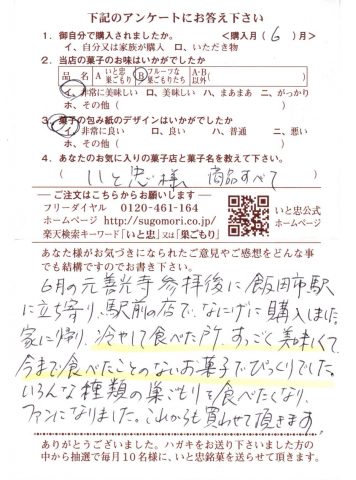 下記のアンケートにお答え下さい
1. 御自分で購入されましたか。 <購入月( 6 )月>
イ、自分又は家族が購入 ロ、いただき物
2. 当店の菓子のお味はいかがでしたか
品 名 A いと忠巣ごもり B フルーツな巣ごもりたち A・B以外( )
イ、非常に美味しい ロ、美味しい ハ、まあまあ ニ、がっかり
ホ、その他( )
3. 菓子の包み紙のデザインはいかがでしたか
イ、非常に良い ロ、良い ハ、普通 ニ、悪い
ホ、その他( )
4. あなたのお気に入りの菓子店と菓子名を教えて下さい。
( いと忠様 商品すべて )
ご注文はこちらからお願いします
フリーダイヤル 0120-461-164
ホームページ http://sugomori.co.jp/
楽天検索キーワード「いと忠」又は「巣ごもり」
いと忠公式
ホームページ
あなた様がお気づきになられたご意見やご感想をどんな事
でも結構ですのでお書き下さい。
6月の元善光寺参拝後に飯田市駅
に立ち寄り、駅前の店で、なにげに購入しました。
家に帰り、冷やして食べた所、すっごく美味しくて、
今まで食べたことのないお菓子でびっくりでした。
いろんな種類の巣ごもりを食べたくなり、
ファンになりました。これからも買わせて頂きます。
ありがとうございました。ハガキをお送り下さいました方の
中から抽選で毎月10名様に、いと忠銘菓を送らせて頂きます。